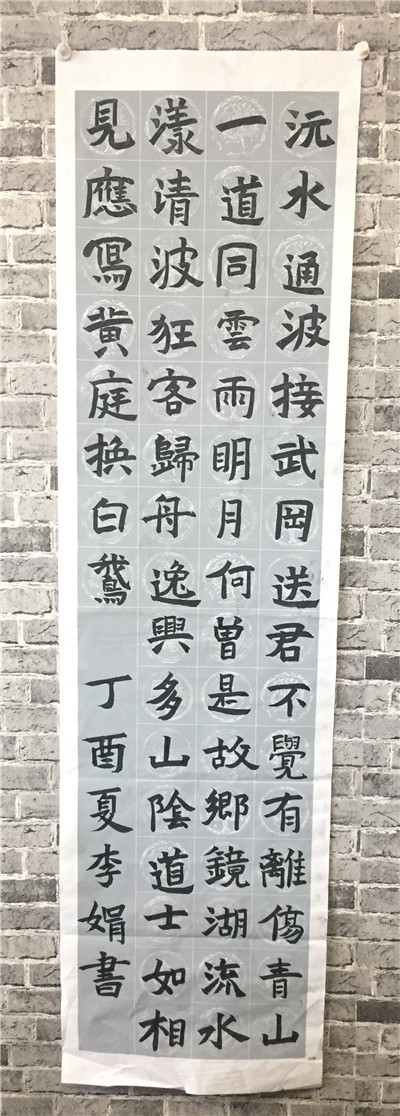 沅水通波接武岡送君不覺有離傷青山
一道同雲雨明月何曾是故鄉鏡湖流水
漾清波狂客歸舟逸興多山陰道士如相
見應寫黃庭换白鵞丁酉夏李娟書